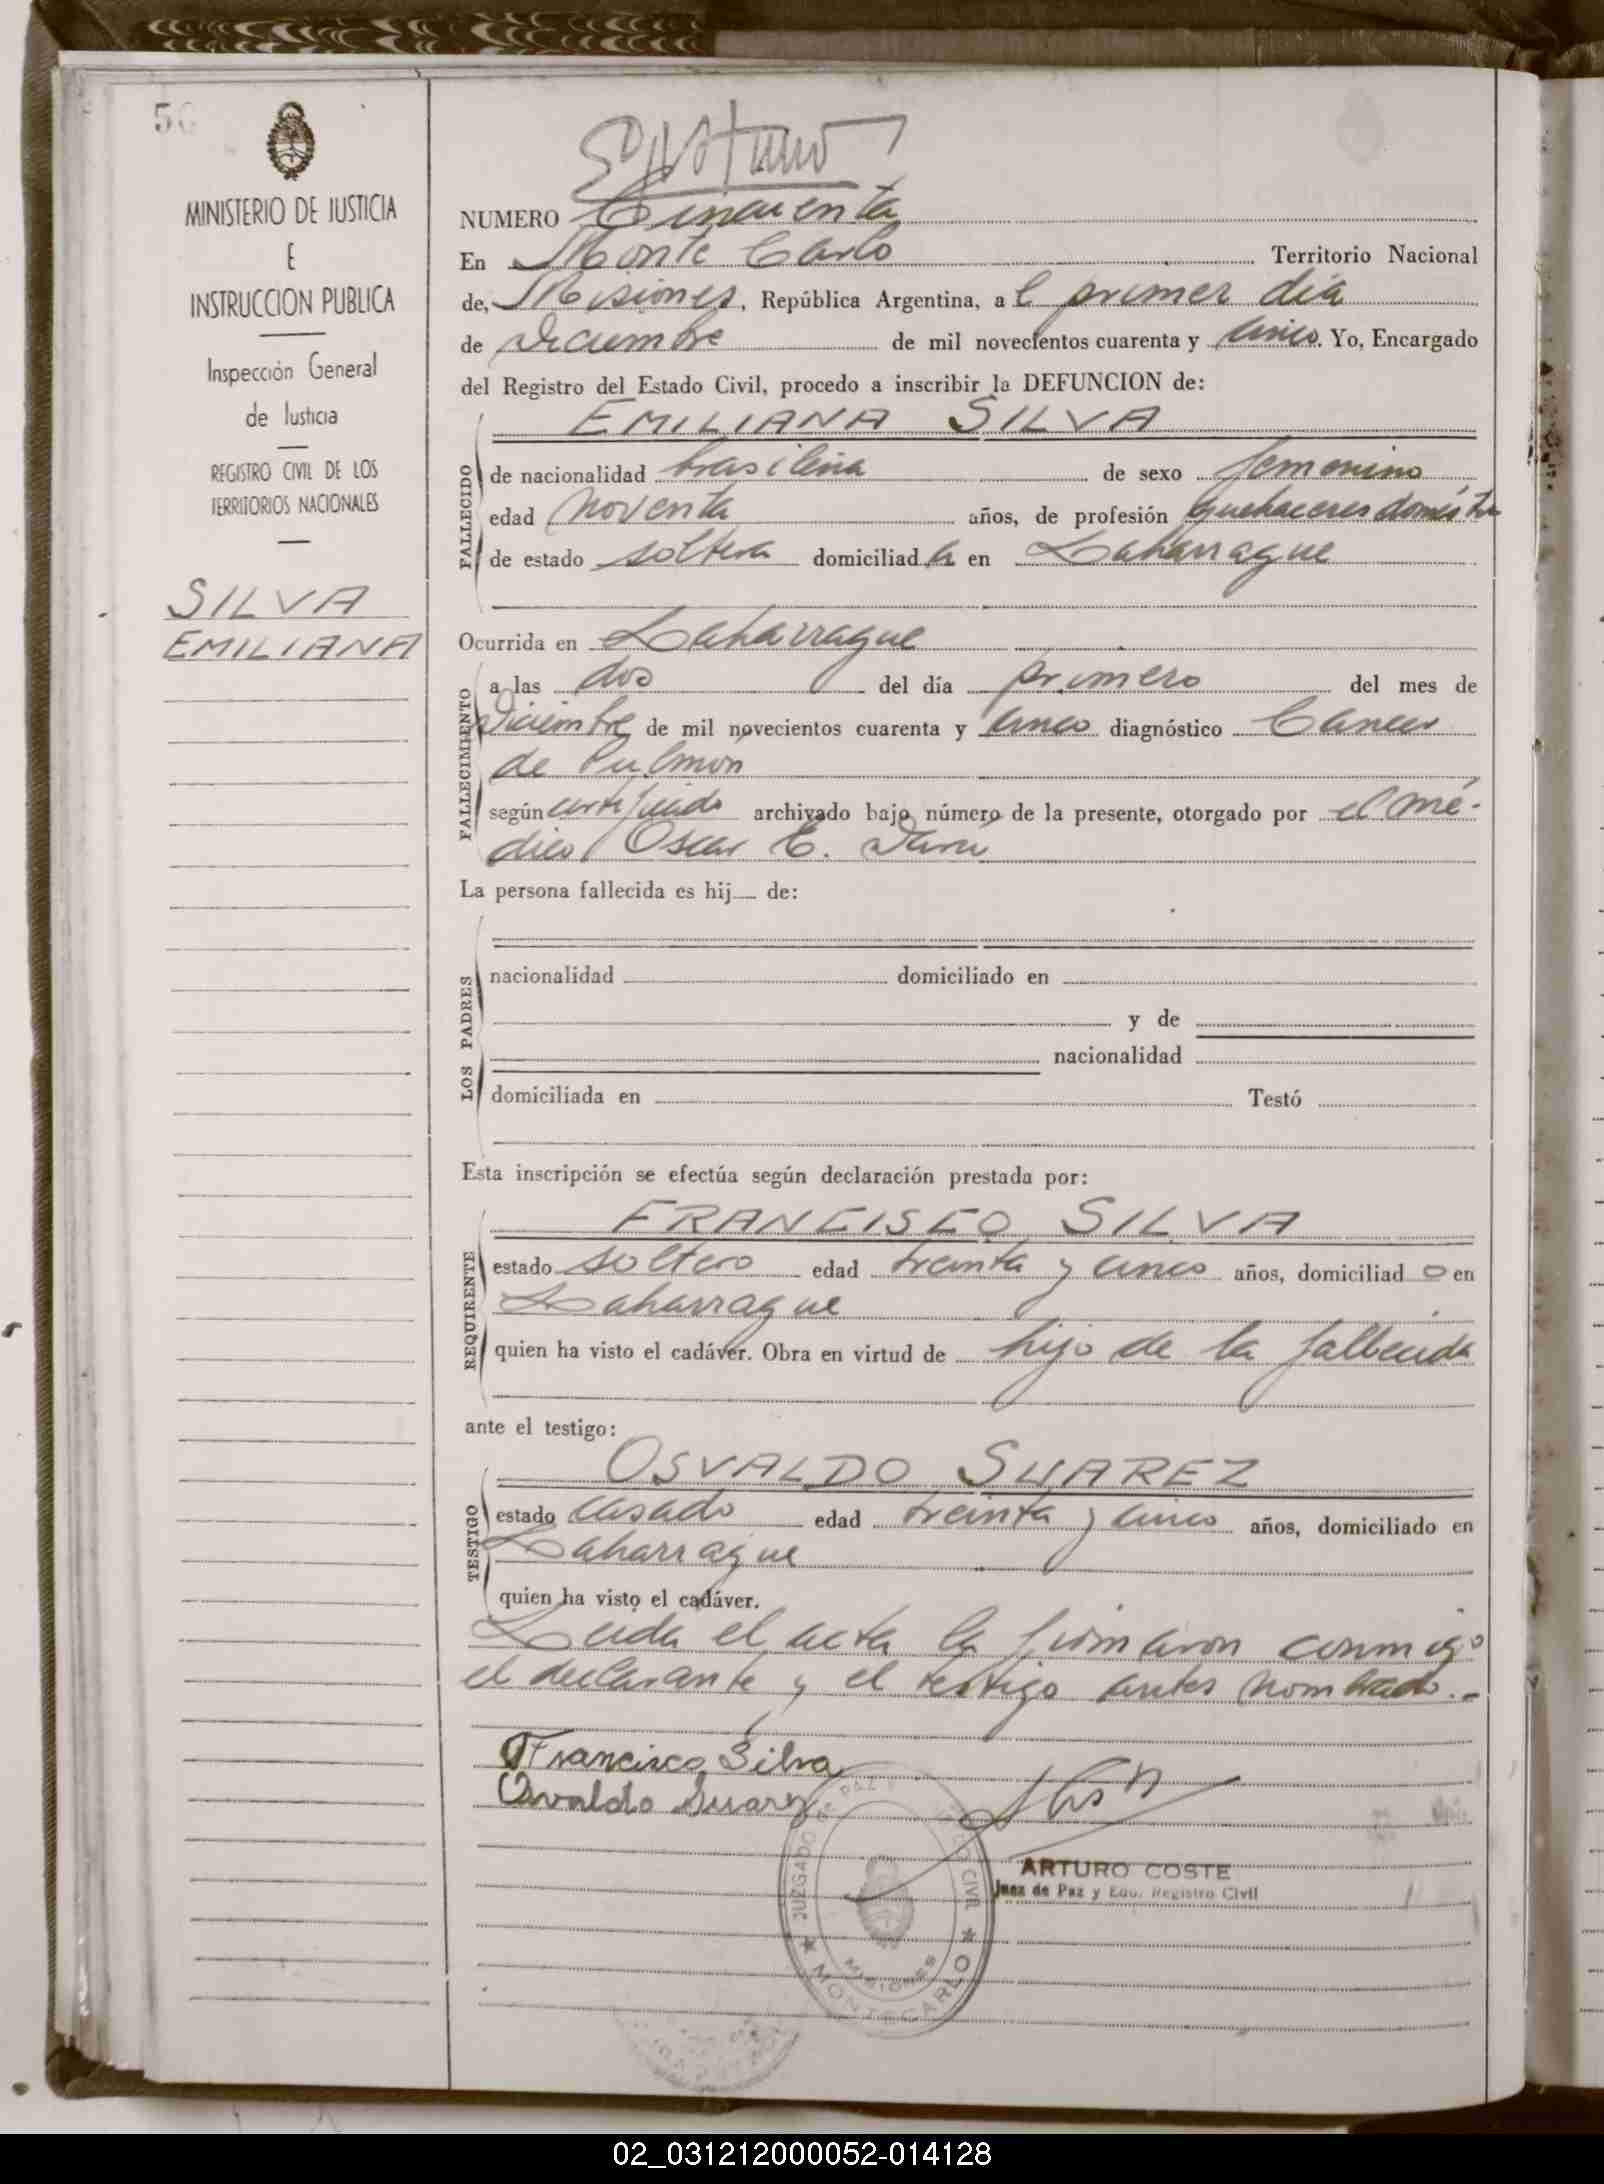 MINISTERIO DE JUSTICIA
E
INSTRUCCION PUBLICA
Inspección General
de Justicia
REGISTRO CIVIL DE LOS
TERRITORIOS NACIONALES
SILVA
EMILIANA
NUMERO Cincuenta
En Monte Carlo Territorio Nacional
de, Misiones, República Argentina, al primer día
de Diciembre de mil novecientos cuarenta y cinco. Yo, Encargado
del Registro del Estado Civil, procedo a inscribir la DEFUNCION de:
EMILIANA SILVA
FALLECIDO
de nacionalidad brasileña de sexo femenino
edad noventa años, de profesión quehaceres domést
de estado soltera domiciliada en Laharrague
Ocurrida en Laharrague
FALLECIMIENTO
a las dos del día primero del mes de
Diciembre de mil novecientos cuarenta y cinco diagnóstico Cancer
de Pulmón
según certificado archivado bajo número de la presente, otorgado por el mé-
dico Oscar C.
La persona fallecida es hij de:
LOS PADRES
nacionalidad domiciliado en
y de
nacionalidad
domiciliada en Testó
Esta inscripción se efectúa según declaración prestada por:
FRANCISCO SILVA
REQUIRENTE
estado soltero edad treinta y cinco años, domiciliado en
Laharrague
quien ha visto el cadáver. Obra en virtud de hijo de la fallecida
ante el testigo:
OSVALDO SUAREZ
TESTIGO
estado casado edad treinta y cinco años, domiciliado en
Laharrague
quien ha visto el cadáver.
Leida el acta la firmaron conmigo
el declarante y el testigo antes nombrado.-
Francisco Silva
Osvaldo Suarez
JUZGADO DE PAZ CIVIL
MISIONES
MONTECARLO
ARTURO COSTE
Juez de Paz y Edo. Registro Civil
02_031212000052-014128